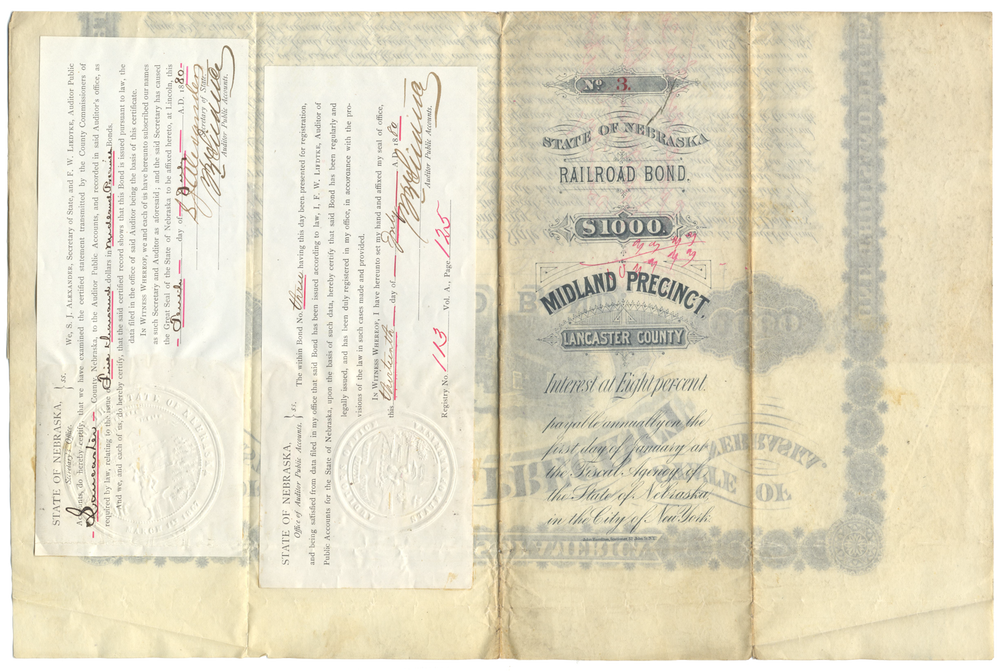 STATE OF NEBRASKA, } ss.
Secretary's Office.
We, S. J. ALEXANDER, Secretary of State, and F. W. LIEDTKE, Auditor Public
Accounts, do hereby certify that we have examined the certified statement transmitted by the County Commissioners of
Lancaster County, Nebraska, to the Auditor Public Accounts, and recorded in said Auditor's office, as
required by law, relating to the issue Five thousand dollars in Midland Precinct Bonds.
And we, and each of us, do hereby certify, that the said certified record shows that this Bond is issued pursuant to law, the
data filed in the office of said Auditor being the basis of this certificate.
IN WITNESS WHEREOF, we and each of us have hereunto subscribed our names
as such Secretary and Auditor as aforesaid; and the said Secretary has caused
the Great Seal of the State of Nebraska to be affixed hereto, at Lincoln, this
day of July A.D. 1880
S. J. Alexander
Secretary of State.
Auditor Public Accounts.
STATE OF NEBRASKA, } ss.
Office of Auditor Public Accounts,
The within Bond No. three having this day been presented for registration,
and being satisfied from data filed in my office that said Bond has been issued according to law, I, F. W. LIEDTKE, Auditor of
Public Accounts for the State of Nebraska, upon the basis of such data, hereby certify that said Bond has been regularly and
legally issued, and has been duly registered in my office, in accordance with the pro-
visions of the law in such cases made and provided.
IN WITNESS WHEREOF, I have hereunto set my hand and affixed my seal of office,
this thirteenth day of July A.D. 1880
Auditor Public Accounts.
Registry No. 113 Vol. A., Page 135
No 3.
STATE OF NEBRASKA
RAILROAD BOND.
$1000.
MIDLAND PRECINCT.
LANCASTER COUNTY
Interest at Eight percent.
payable annually on the
first day of January at
the Fiscal Agency of
the State of Nebraska
in the City of New York